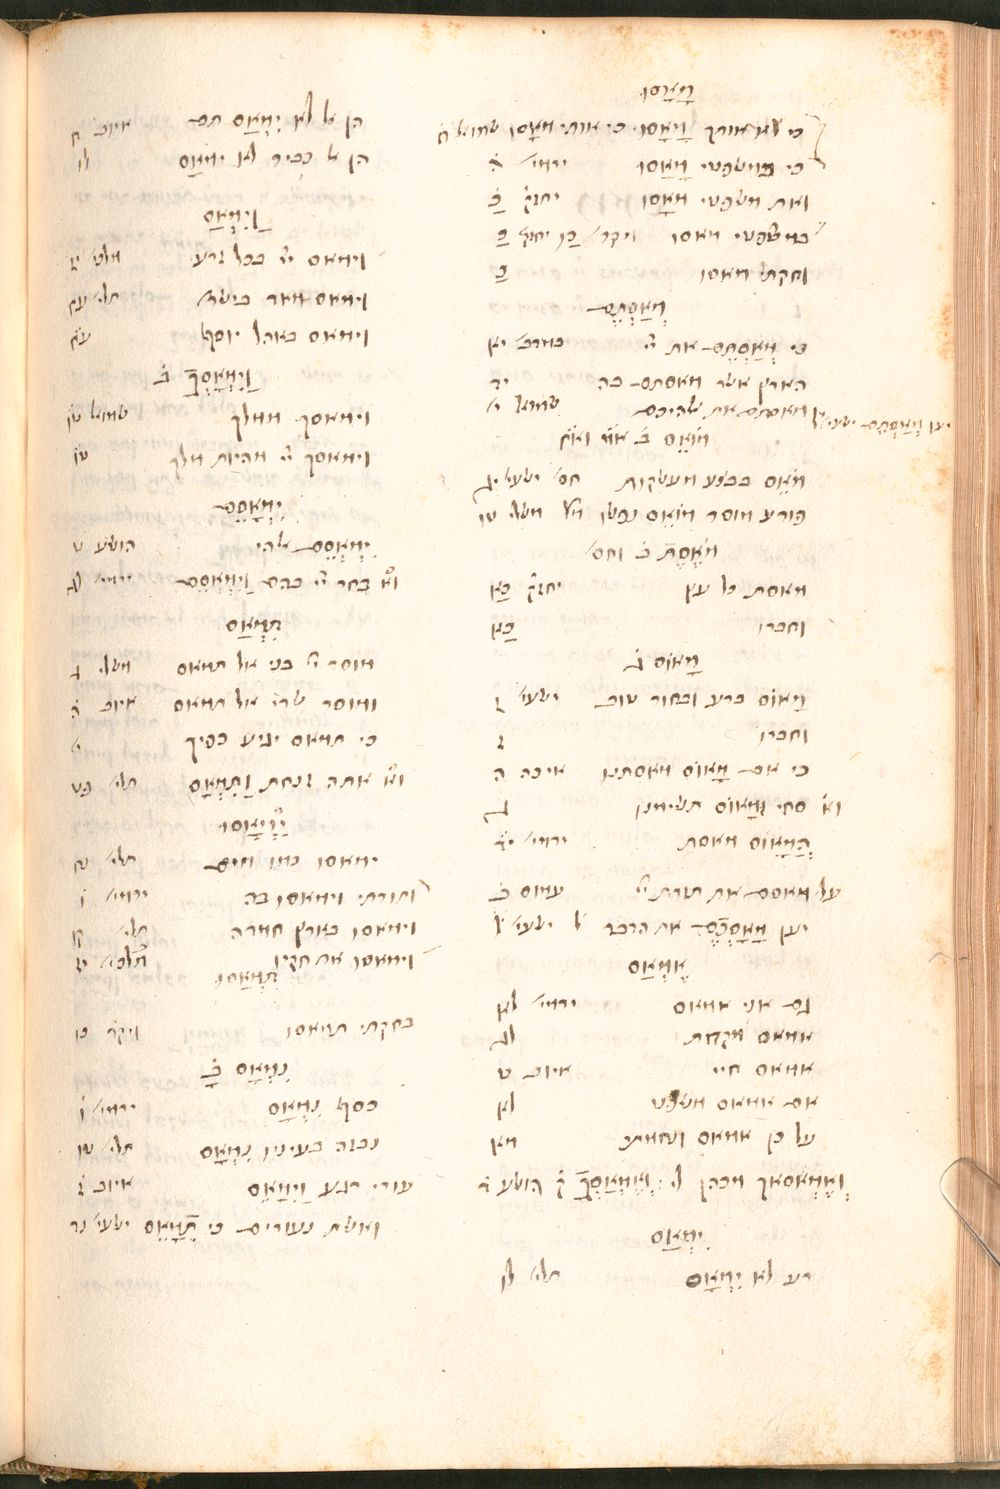 מָאָסוּ
כי לא אותך מָאָסוּ כי אותי מָאֲסוּ שמואל ח
כי במשפטי מָאָסוּ יחזק' ה
ואת משפטי מָאָסוּ יחזק' כ
במשפטי מאסו ויקר' כו יחזק' כ
וחקתי מאסו כ
מְאַסְתֶּם
כי מְאַסְתֶּם את יי במדבר יא
הארץ אשר מאסתם בה יד
מאסתם את אלהיכם שמואל י
יען מְאַסְתֶּם ישעי' ל
מוֹאֵס
מוֹאֵס בבצע מעשקות ישעי' לג
פורע מוסר מוֹאֵס נפשו משלי טו
מֹאֶסֶת
מאסת כל עץ יחזק' כא
וחברו כא
מָאוֹס
מָאוֹס ברע ובחור טוב ישעי' ז
וחברו ז
כי אם מָאוֹס מאסתנו איכה ה
סחי וּמָאוֹס תשימנו ג
הֲמָאוֹס מאסת ירמי' יד
על מאסם את תורת יי עמוס ב
יען מָאָסְכֶם הדבר ישעי' ל
אֶמְאַס
גם אני אמאס ירמי' לא
אמאס חיי איוב ט
אם אמאס משפט לא
על כן אמאס ונחמתי מא
וְאֶמְאָסְאךָ מכהן לי הושע ד
יִמְאַס
רע לא יִמְאָס תלי' לו
הן אל לא יִמְאַס תם איוב ח
הן אל כביר לא ימאס לו
וַיִּמְאַס
וימאס יי בכל זרע מלכי' יז
וימאס מאד בישר' תלי' עח
וימאס באהל יוסף עח
וַיִּמְאָסְךָ ב
וימאסך ממלך שמואל טו
וימאסך יי מהיות מלך טו
יִמְאָסֵם
יִמְאָסֵם אלהי הושע ט
בחר יי בהם וַיִּמְאָסֵם ירמי' לג
תִּמְאַס
מוסר יי בני אל תמאס משלי ג
ומוסר שדי אל תמאס איוב ה
כי תמאס יגיע כפיך י
אתה זנחת וַתִּמְאָס תלי' פט
יִמְאָסוּ
ימאסו כמו מים תלי' נח
ותורתי וימאסו בה ירמי' ו
וימאסו בארץ חמדה תלי' קו
וימאסו את חקיו מלכי' יז
תִּמְאָסוּ
בחקתי תמאסו ויקר' כו
נִמְאָס
כסף נִמְאָס ירמי' ו
נבזה בעיניו נִמְאָס תלי' טו
עורי רגע וַיִּמָּאֵס איוב ז
ואשת נעורים כי תִמָּאֵס ישעי' נד